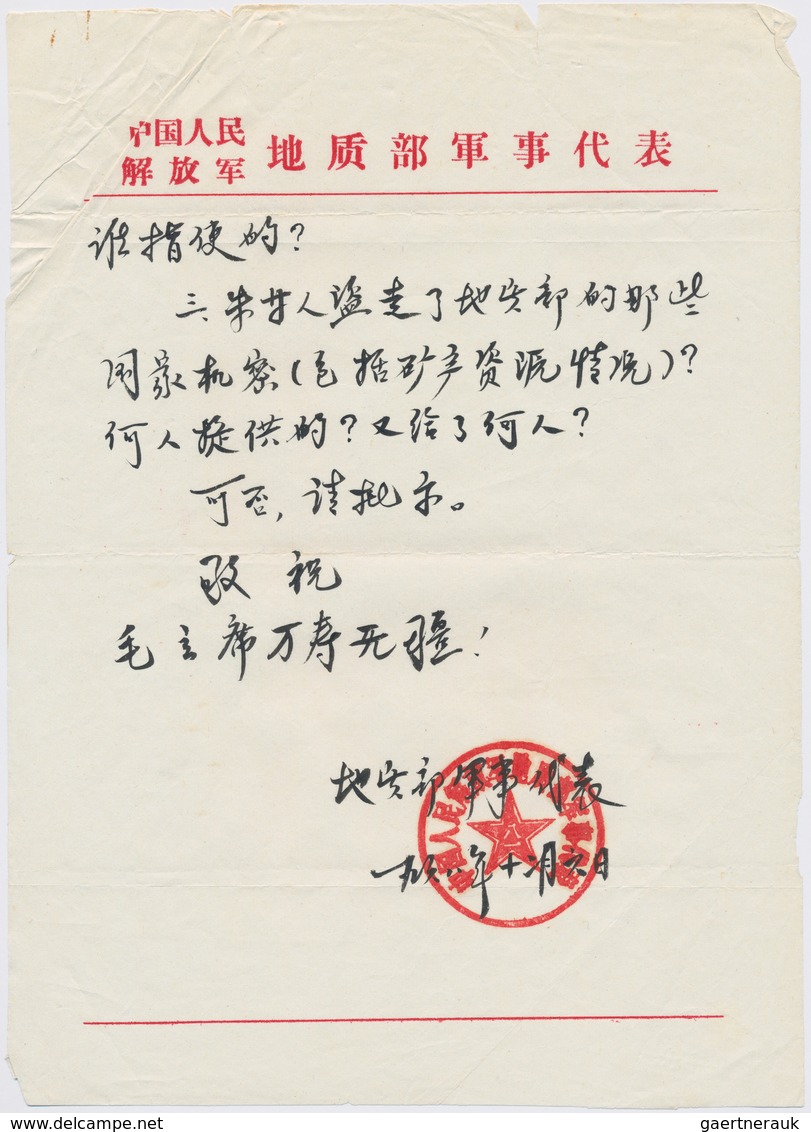 中国人民
解放军 地质部軍事代表
谁指使的？
三、朱廿人盗走了地质部的那些
国家机密（包括矿产资源情况）？
何人提供的？又给了何人？
可否，请批示。
敬祝
毛主席万寿无疆！
地质部軍事代表
一九六八年十二月六日
delcampe.net
gaertnerauk